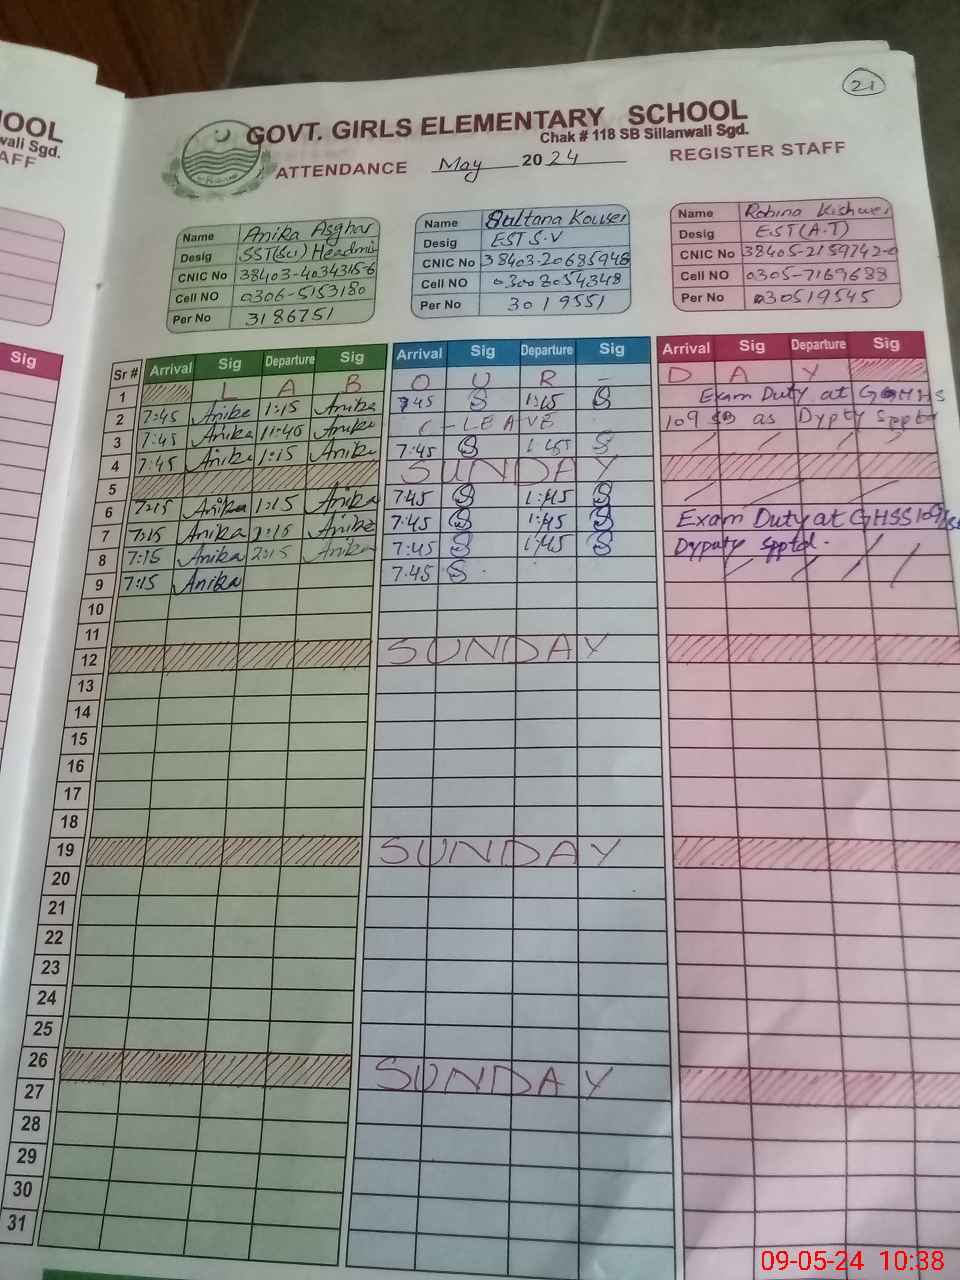 21
HOOL
wali Sgd.
AFF
Sig
GOVT. GIRLS ELEMENTARY SCHOOL
Chak # 118 SB Sillanwali Sgd.
ATTENDANCE May 2024 REGISTER STAFF
Name Anika Asghar
Desig SST(Sci) Headmis
CNIC No 38403-4034315-6
Cell NO 0306-5153180
Per No 3186751
Name Sultana Kouser
Desig EST S.V
CNIC No 38403-2068594-8
Cell NO 03008054348
Per No 3019551
Name Robina Kishwer
Desig EST(A.T)
CNIC No 38405-2159742-0
Cell NO 0305-7169688
Per No 030519545
Sr # Arrival Sig Departure Sig Arrival Sig Departure Sig Arrival Sig Departure Sig
1 L A B O U R - D A Y
2 7:45 Anika 1:15 Anika 7:45 S 1:15 S Exam Duty at GGHHS
3 7:45 Anika 11:40 Anika C-LEAVE 109 SB as Dypty Spptd
4 7:45 Anika 1:15 Anika 7:45 S 1:45 S
5 SUNDAY
6 7:15 Anika 1:15 Anika 7:45 S 1:45 S
7 7:15 Anika 2:15 Anika 7:45 S 1:45 S Exam Duty at GHSS 109/SB
8 7:15 Anika 2:15 Anika 7:45 S 1:45 S Dyputy Spptd.
9 7:15 Anika 7:45 S
10
11
12 SUNDAY
13
14
15
16
17
18
19 SUNDAY
20
21
22
23
24
25
26 SUNDAY
27
28
29
30
31
09-05-24 10:38